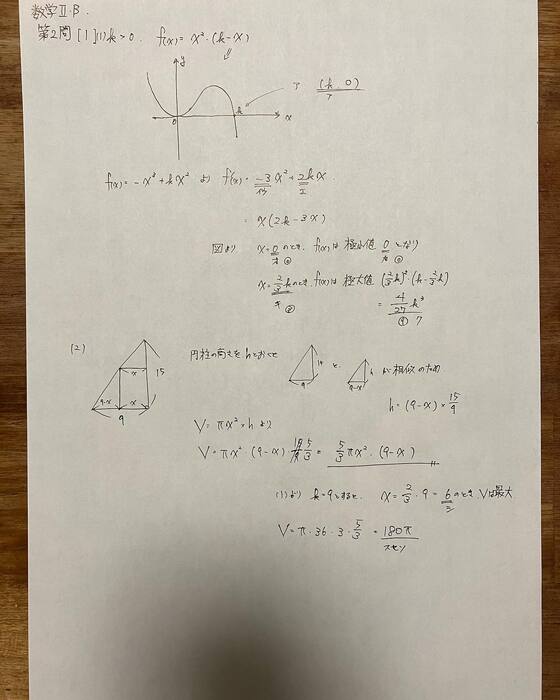 数学Ⅱ・B
第2問 [1](1) k>0. f(x) = x²・(k-x)
y
k
O
x
ア (k, 0)
ア
f(x) = -x³+kx² より f'(x) = -3x²+2kx
イウ エ
= x(2k-3x)
図より x=0のとき, f(x)は極小値 0 となり
オ⓪ カ⓪
x=2/3kのとき, f(x)は極大値 (2/3k)²・(k-2/3k)
キ
= 4/27k³
ク
(2)
x
15
9-x x
9
円柱の高さをhとおくと
9
と
h
9-x
が相似のため
h = (9-x)×15/9
V = πx²×h より
V = πx²・(9-x)・5/3 = 5/3πx²・(9-x)
(1)より k=9とすると, x=2/3・9=6のとき, Vは最大
V = π・36・3・5/3 = 180π
スセソ